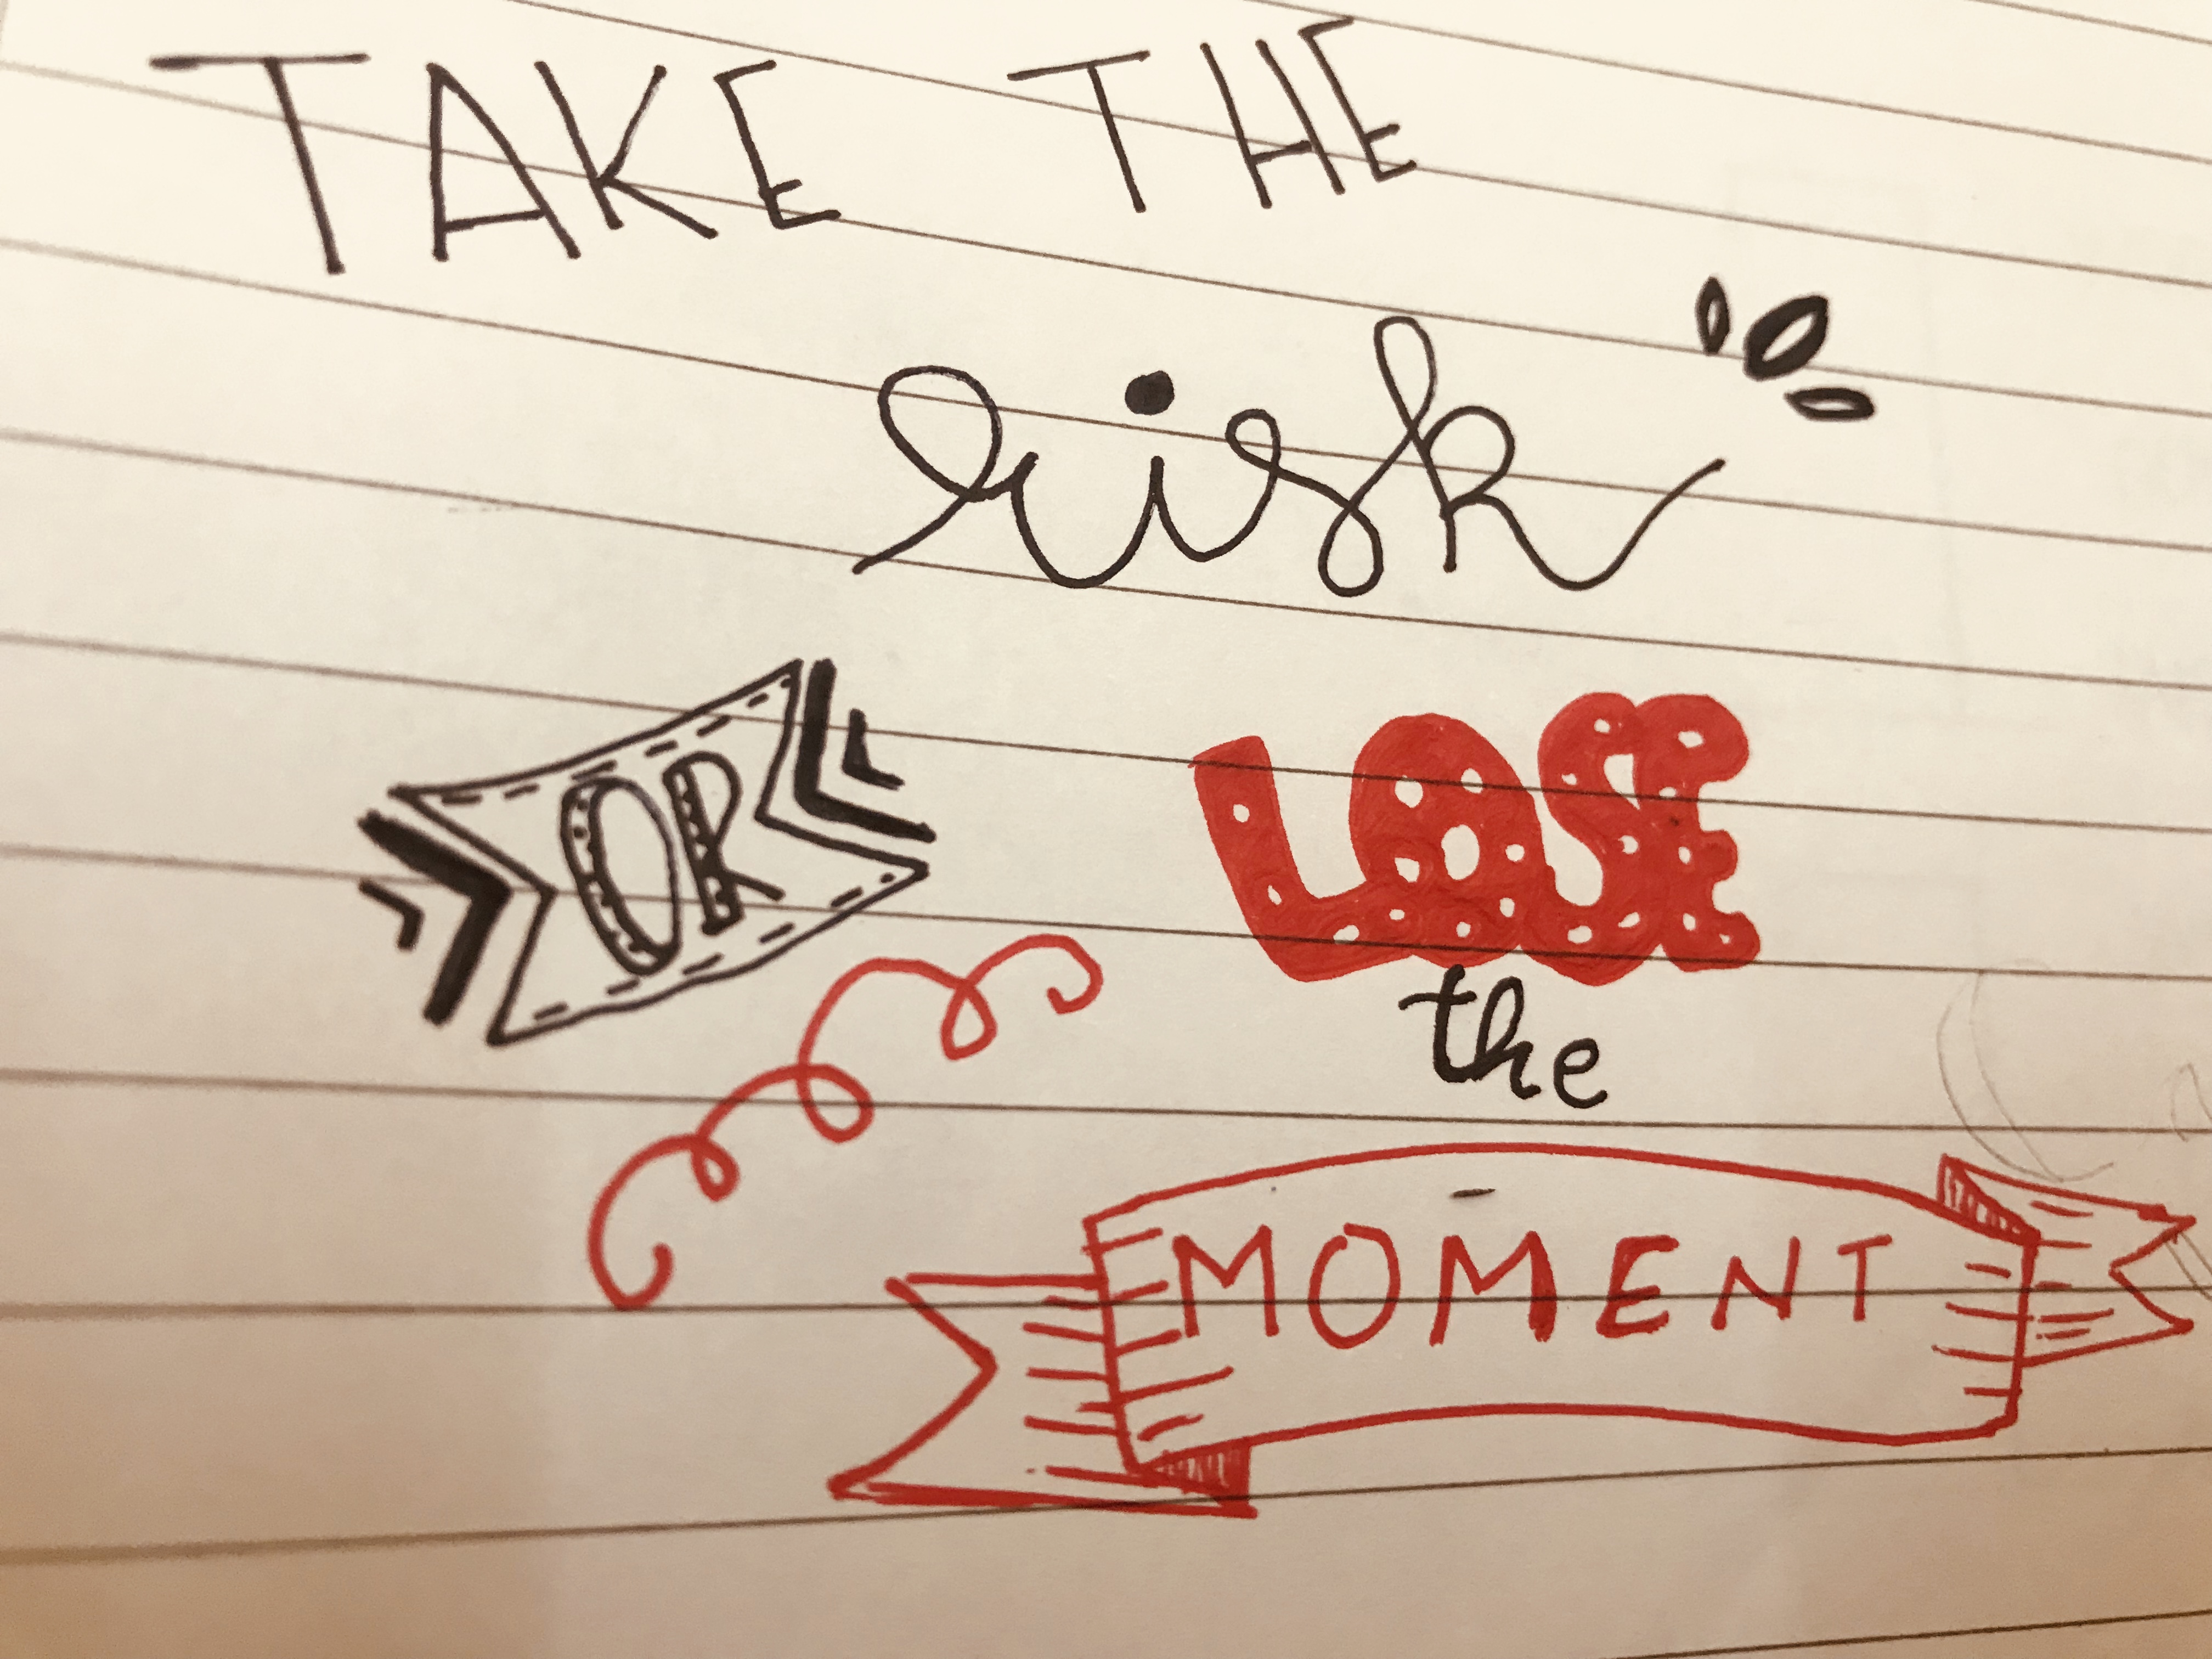 TAKE THE
risk
OR LOSE
the
MOMENT